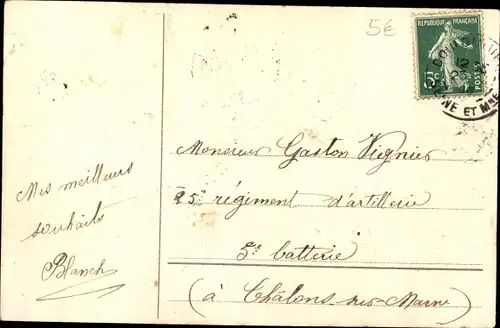 5€
REPUBLIQUE FRANÇAISE
5c
POSTES
12
ET MNE
Mes meilleurs
souhaits
Blanch
Monsieur Gaston Vignier
25e régiment d'artillerie
5e batterie
(à Châlons-sur-Marne)